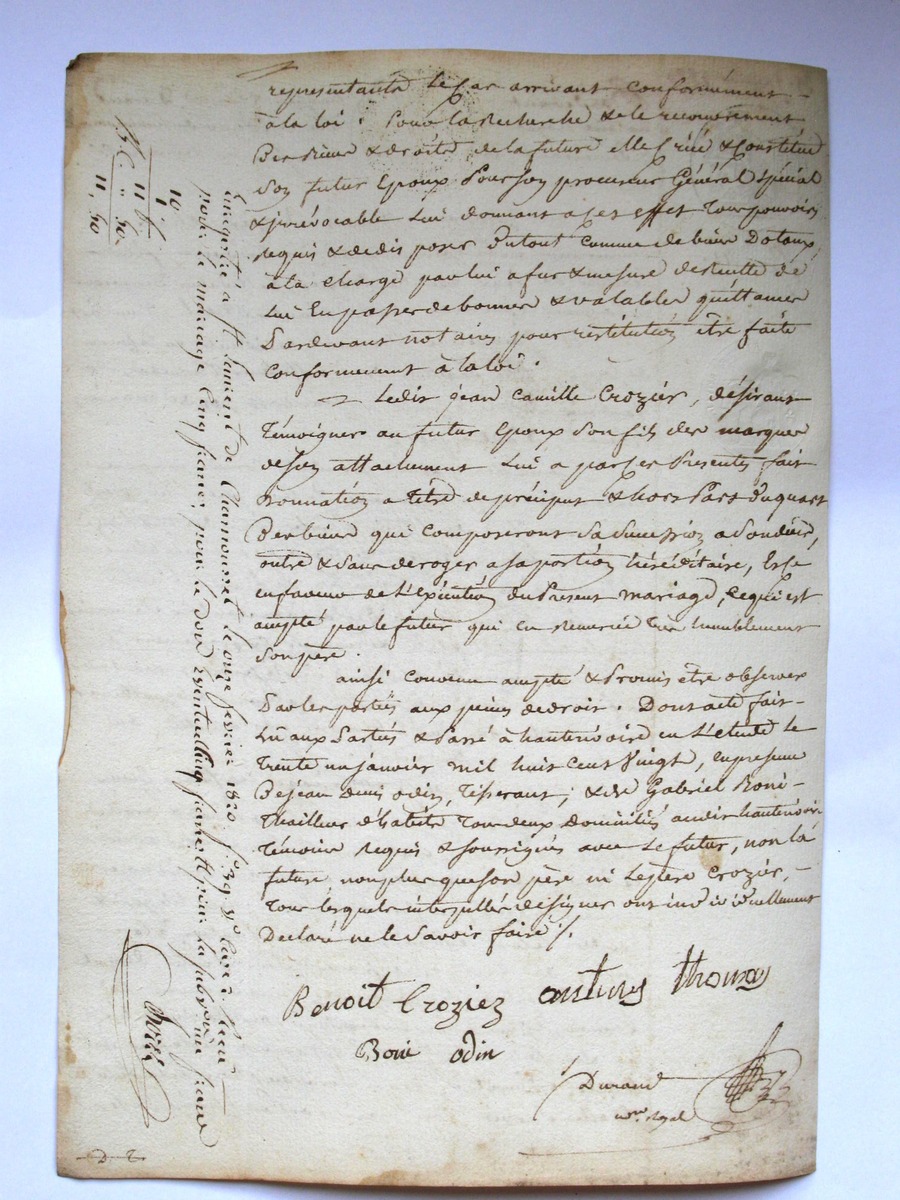 representants le cas arrivant conformément
à la loi. Pour la Recherche & le recouvrement
Des biens & droits de la future elle créé & Constitue
son futur Epoux Pour son procureur Général spécial
& jrrévocable lui donnant a cet effet Tous pouvoirs
requis & de disposer du tout Comme de biens Dotaux,
à la charge par lui a fur & mesure de recette de
lui En passer de bonnes & valables quittances
Pardevant notaires pour restitution être faite
Conformement à la loi.
Ledit jean Camille Crozier, désirant
Témoigner au futur epoux son fils des marques
de son attachement lui a par ces Présentes fait
Donnation a Titre de préciput & hors Part du quart
Des biens qui composeront sa succession a son décès,
outre & sans deroger a sa portion héréditaire, Et ce
en faveur de l'exécution du Present mariage, ce qui est
accepté par le futur qui en remercie très humblement
son père.
ainsi convenu accepté & Promis être observer
Par les parties aux peines de droit. Dont acte fait
Lu aux Parties & Passé à hauterivoire en l'étude le
Trente un janvier mil huit cent Vingt, en presence
De jean denis odin, Tisserant; & de Gabriel Boni
Thailleur d'habits Tous deux Domiciliés audit hauterivoire
Témoins requis & soussignés avec le futur, non la
future non plus que son père ni le père Crozier,
Tous lesquels interpellés de signer ont individuellement
Déclaré ne le savoir faire ./.
Benoit Croziez antoins thomas
Boni odin
Durand
nre. royal
Enregistré à St Laurent de Chamousset le onze fevrier 1820. fo. 39 Vo
pour le mariage Cinq francs, pour le don eventuel Cinq francs, & pour la subvon. un franc
10
1
11 f.
" 50
11, 50
D. T.